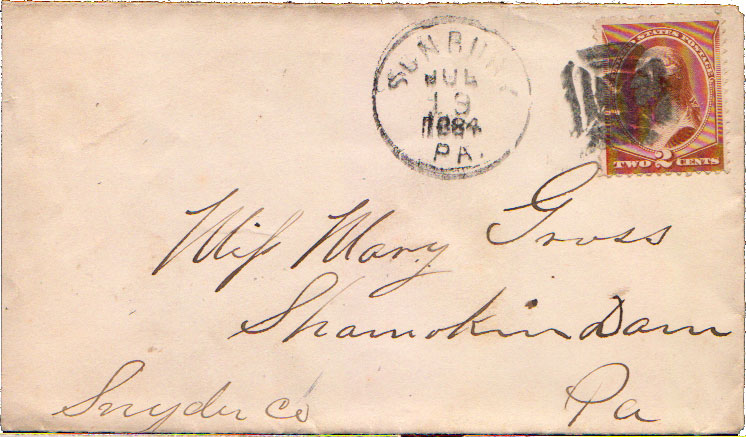 SUNBURY
JUL
19
1884
PA.
STATES POSTAGE
TWO 2 CENTS
Miſs Mary Gross
Shamokin Dam
Snyder Co Pa